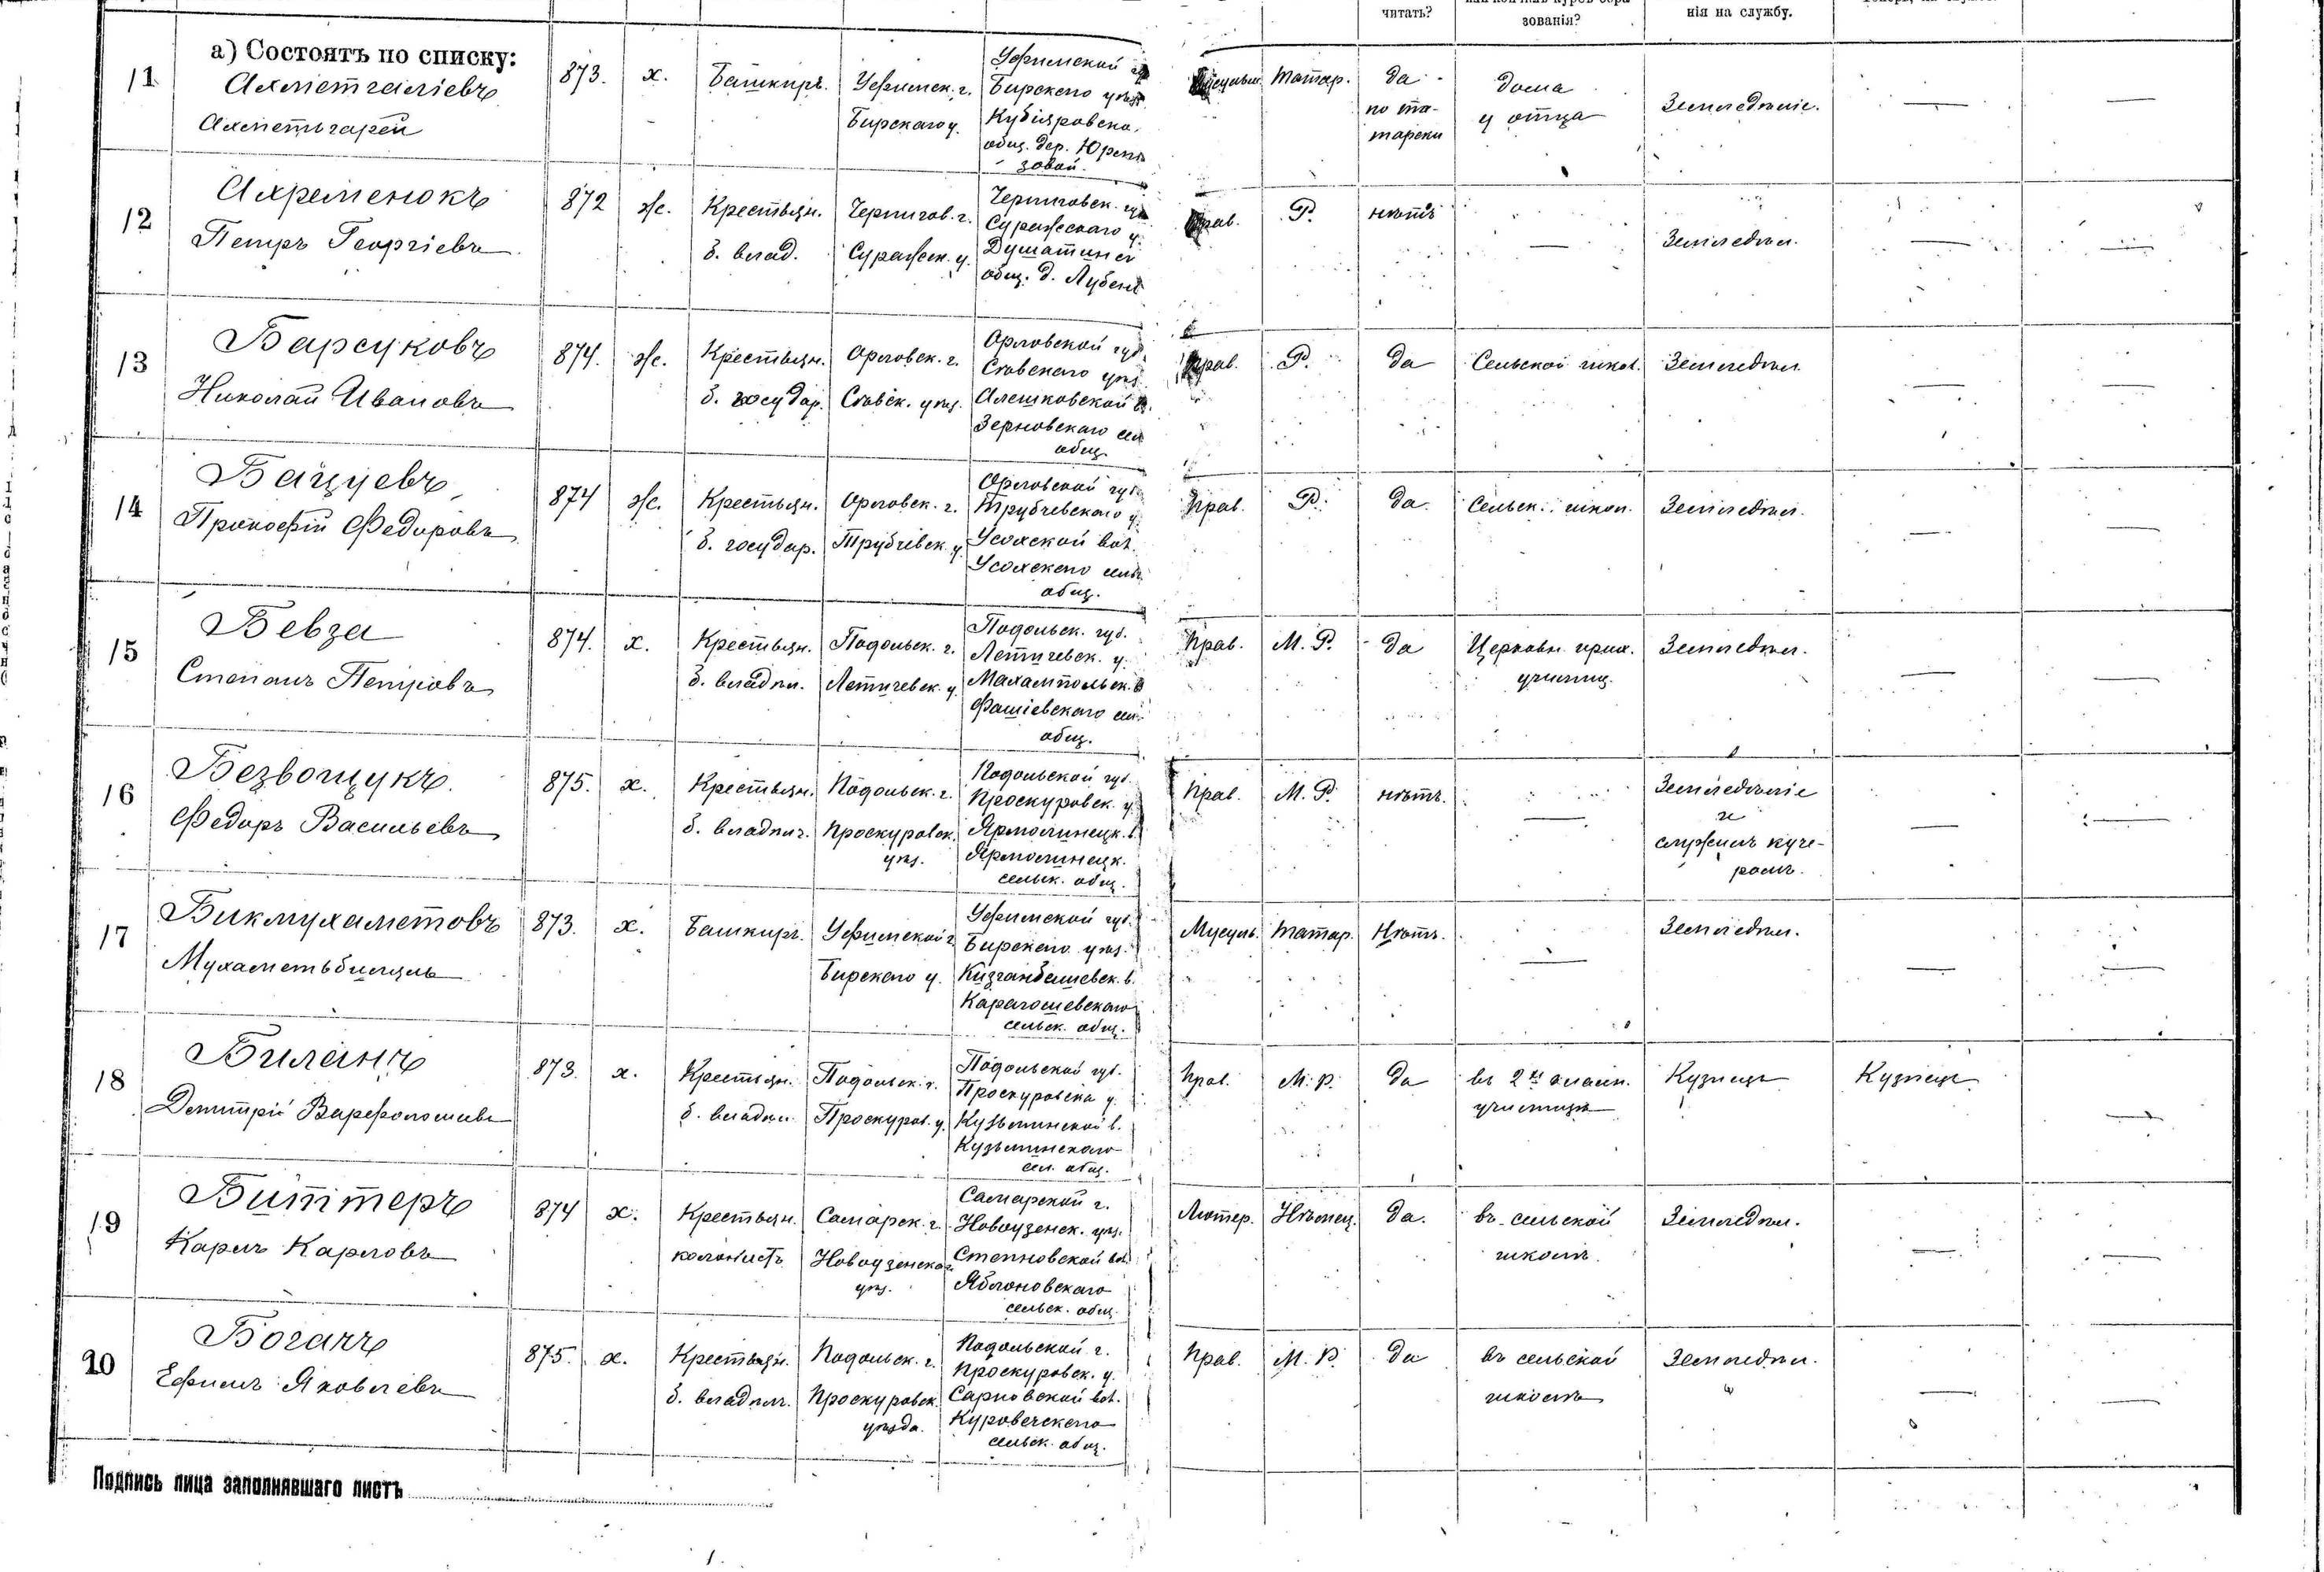 читать?
зованія?
нія на службу.
а) Состоятъ по списку:
11 Ахметгаліевъ 873. х. Башкиръ. Уфимск. г. Уфимской Мусульм. Татар. да дома Земледѣліе. — —
Ахметьгарей Бирскаго у. Бирскаго уѣз. по та- у отца
Кубіяровска.
общ. дер. Юрем тарски
зовой.
12 Ахременокъ 872 ж. Крестьян. Чернигов. г. Черниговск. Прав. Р. нѣтъ — Земледѣл. — —
Петръ Георгіевъ б. влад. Суражск. у. Суражскаго у.
общ. д. Лубен
13 Барсуковъ 874. ж. Крестьян. Орловск. г. Орловской губ. Прав. Р. да Сельской школ. Земледѣл. — —
Николай Ивановъ б. государ. Сѣвск. уѣз. Сѣвскаго уѣз.
Алешковской в.
Зерновскаго сел
общ.
14 Прокофій Федоровъ 874 ж. Крестьян. Орловск. г. Орловской губ. Прав. Р. да. Сельск. школ. Земледѣл. — —
б. государ. Трубчевск. у. Трубчевскаго у.
Усохской вол.
Усохскаго сель
общ.
15 Бевза 874. х. Крестьян. Подольск. г. Подольск. губ. Прав. М. Р. да Церковн. прих. Земледѣл. — —
Степанъ Петровъ б. владѣл. Летичевск. у. Летичевск. у. училищ.
общ.
16 875. х. Крестьян. Подольск. г. Подольской губ. Прав. М. Р. нѣтъ. — Земледѣліе — —
Федоръ Васильевъ б. владѣл. Проскуровск. Проскуровск. у. и
уѣз. Ярмолинецк. в. служилъ куче-
Ярмолинецк. ромъ.
сельск. общ.
17 Бикмухаметовъ 873. х. Башкир. Уфимской г. Уфимской губ. Мусуль. Татар. Нѣтъ. — Земледѣл. — —
Бирскаго у. Бирскаго уѣз.
Кизганбашевск. в.
сельск. общ.
18 Биланъ 873. х. Крестьян. Подольск. г. Подольской губ. Прав. М. Р. да въ 2хъ класн. Кузнецъ Кузнецъ —
Дмитрій б. владѣл. Проскуров. у. Проскуровска у. училищѣ
Кузьминской в.
Кузьминскаго
сел. общ.
19 Биттеръ 874 х. Крестьян. Самарск. г. Самарской г. Лютер. Нѣмец. да. въ сельской Земледѣл. — —
Карлъ Карловъ колонистъ Новоузенска Новоузенск. уѣз. школѣ
уѣз. Степновской вол.
Яблоновскаго
сельск. общ.
20 Богачъ 875. х. Крестьян. Подольск. г. Подольской г. Прав. М. Р. да въ сельской Земледѣл. — —
Ефимъ Яковлевъ б. владѣл. Проскуровск. Проскуровск. у. школѣ
уѣзда. Сарновской вол.
сельск. общ.
Подпись лица заполнявшаго листъ